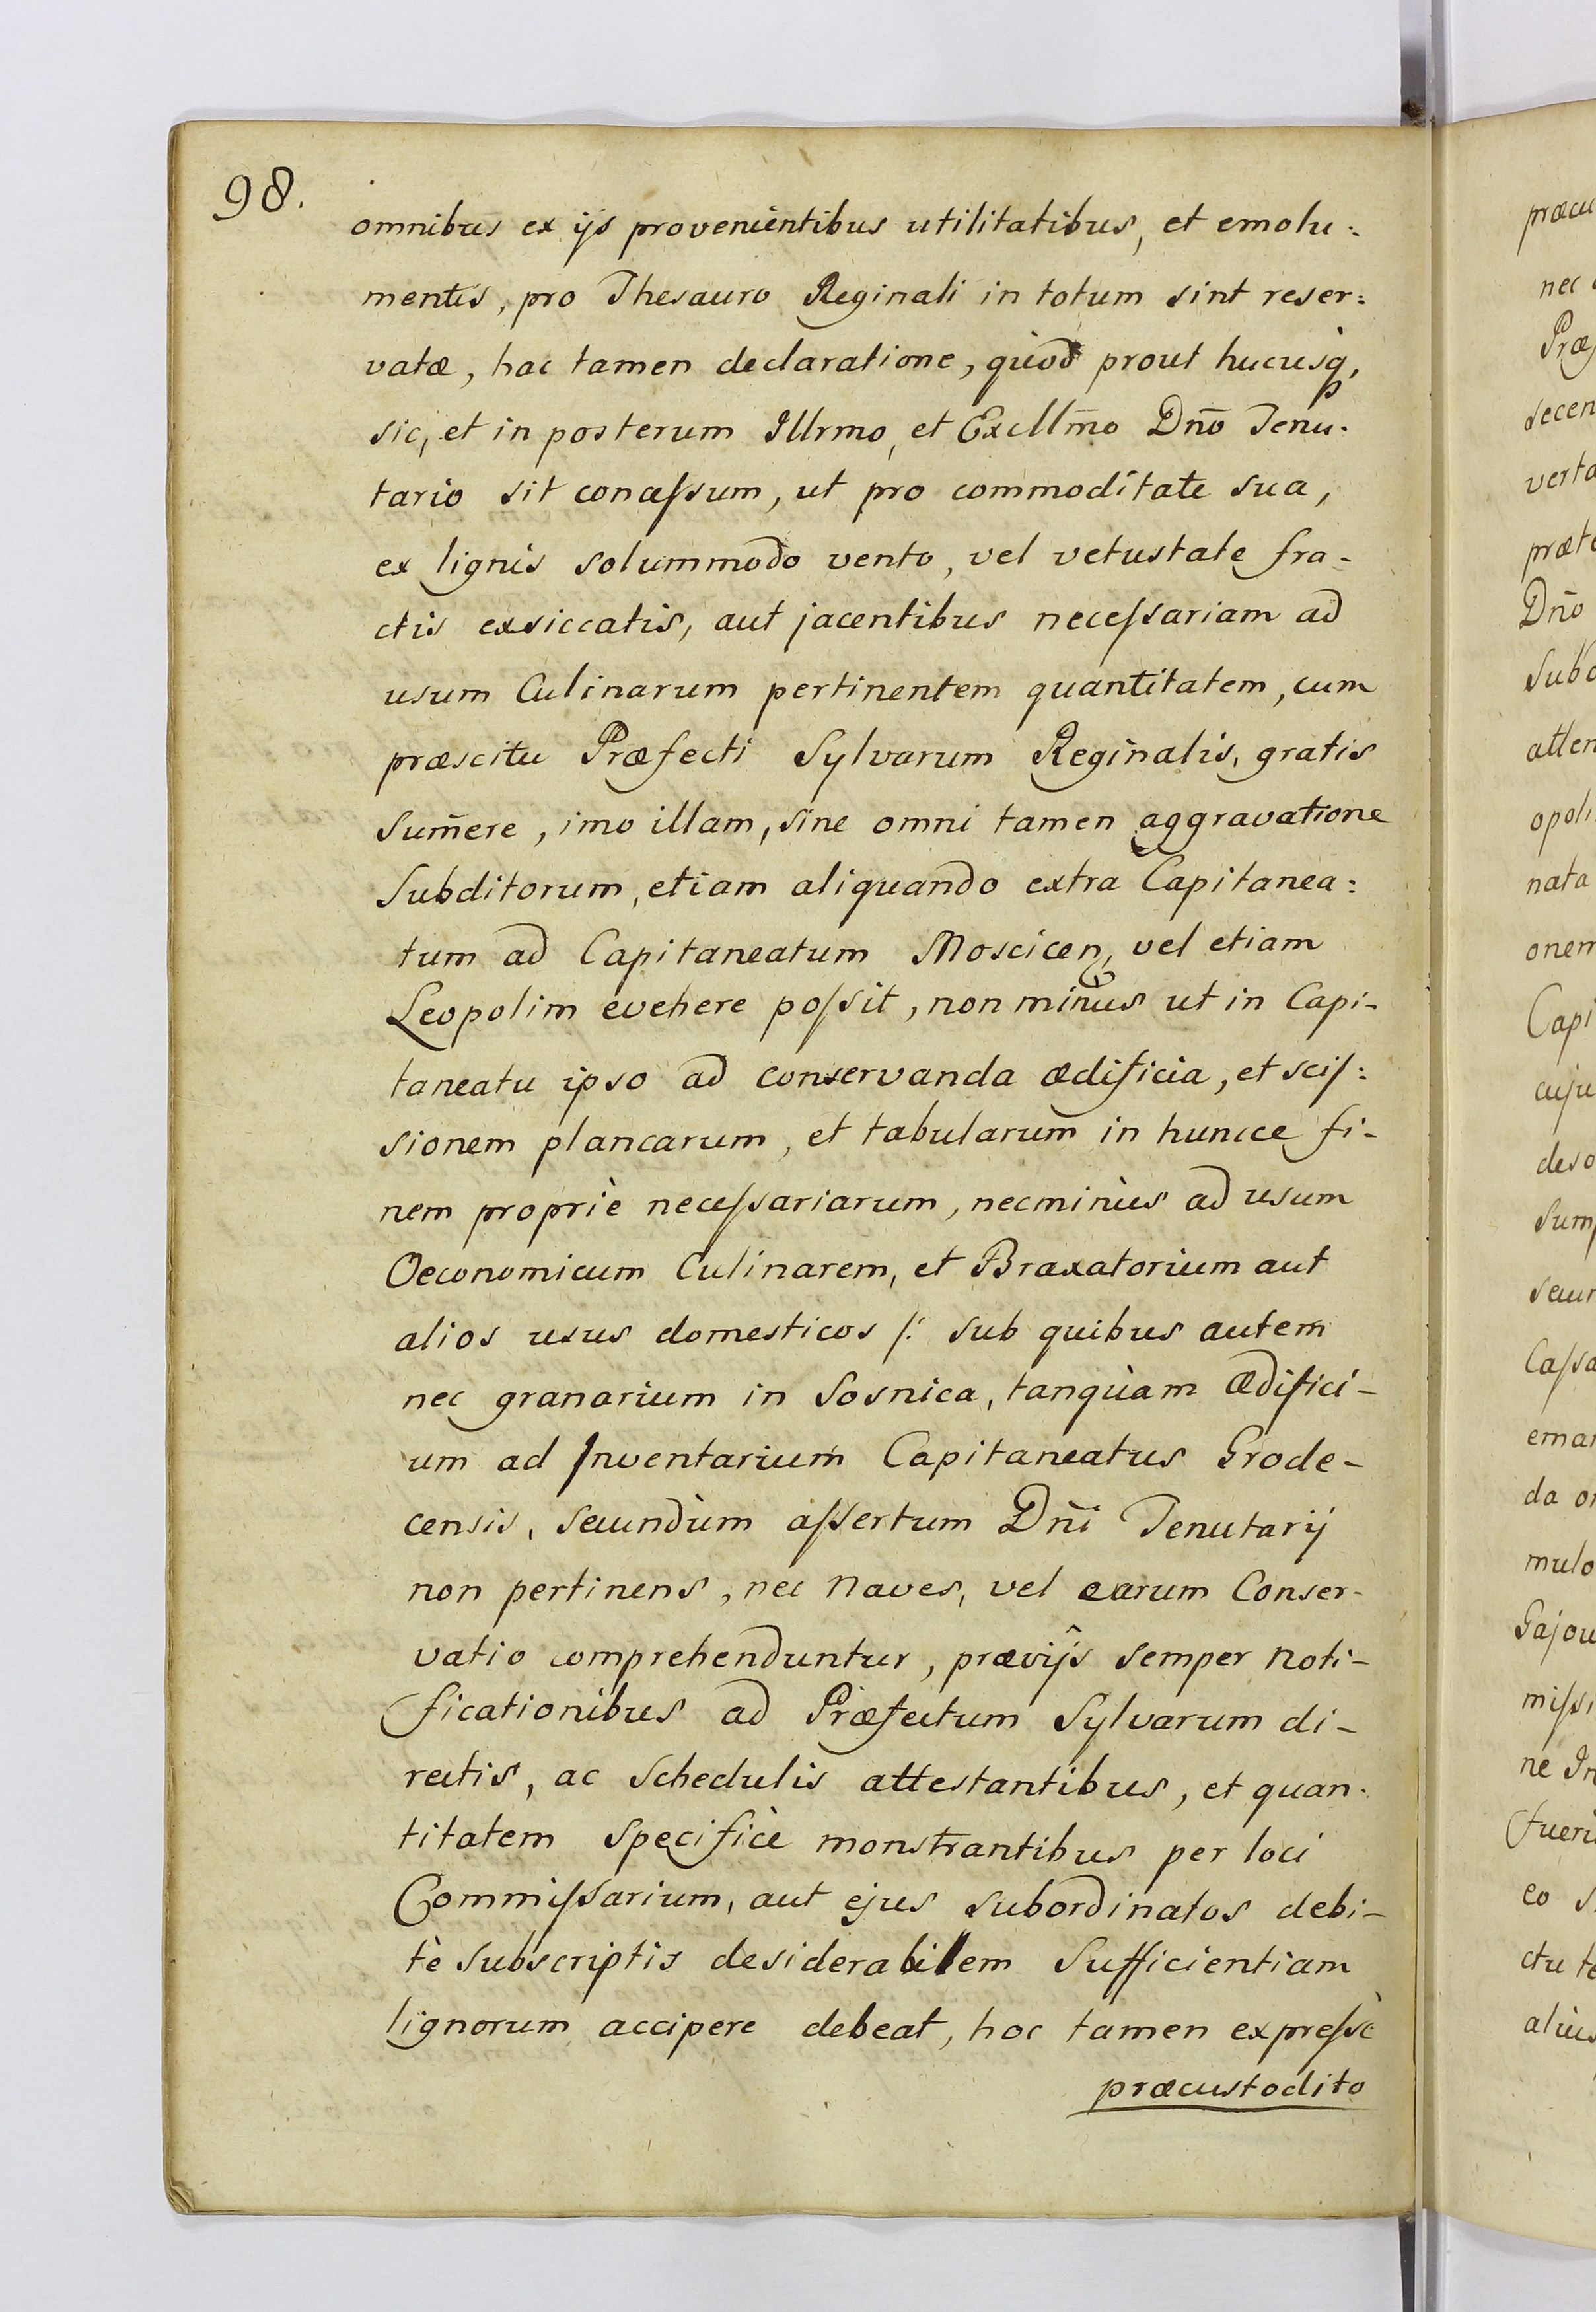 98.
omnibus ex ijs provenientibus utilitatibus, et emolu:
mentis, pro Thesauro Reginali in totum sint reser:
vatæ, hac tamen declaratione, quòd prout hucusq,
sic, et in posterum Illrmo, et Excllm̃o Dño Tenu-
tario sit conceſsum, ut pro commoditate sua,
ex lignis solummodo vento, vel vetustate fra-
ctis exsiccatis, aut jacentibus neceſsariam ad
usum Culinarum pertinentem quantitatem, cum
præscitu Præfecti Sylvarum Reginalis, gratis
Sum̃ere, imo illam, sine omni tamen aggravatione
Subditorum, etiam aliquando extra Capitanea:
tum ad Capitaneatum Moscicen, vel etiam
Leopolim evehere poſsit, non minùs ut in Capi-
taneatu ipso ad conservanda ædificia, et sciſ:
sionem plancarum, et tabularum in huncce fi-
nem propriè neceſsariarum, necminùs ad usum
Oeconomicum Culinarem, et Braxatorium aut
alios usus domesticos /: sub quibus autem
nec granarium in Sosnica, tanquàm Ædifici-
um ad Inventarium Capitaneatus Grode-
censis, secundùm aſsertum Dñi Tenutarij
non pertinens, nec Naves, vel earum Conser-
vatio comprehenduntur, prævijs semper Noti-
ficationibus ad Præfectum Sylvarum di-
rectis, ac Schedulis attestantibus, et quan-
titatem Specificè monstrantibus per loci
Commiſsarium, aut ejus subordinatos debi-
tè subscriptis desiderabilem Sufficientiam
lignorum accipere debeat, hoc tamen expreſsè
præcustodito
præcu
nec
Præf
decen
verta
præte
Dño
Subo
atten
opoli
nata
onem
Capi
cuju
deso
Sump
secun
Caſsa
eman
da
mulo
Gajou
miſsi
ne In
fueri
eo
ctu te
alius